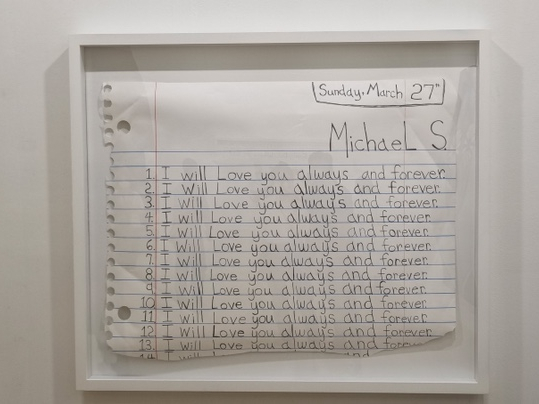 Sunday, March 27th
Michael S.
1. I will Love you always and forever.
2. I Will Love you always and forever.
3. I Will Love you always and forever.
4. I will Love you always and forever.
5. I Will Love you always and forever.
6. I Will Love you always and forever.
7. I Will Love you always and forever.
8. I Will Love you always and forever.
9. I Will Love you always and forever.
10. I Will Love you always and forever.
11. I Will Love you always and forever.
12. I Will Love you always and forever.
13. I Will Love you always and forever
14. I will